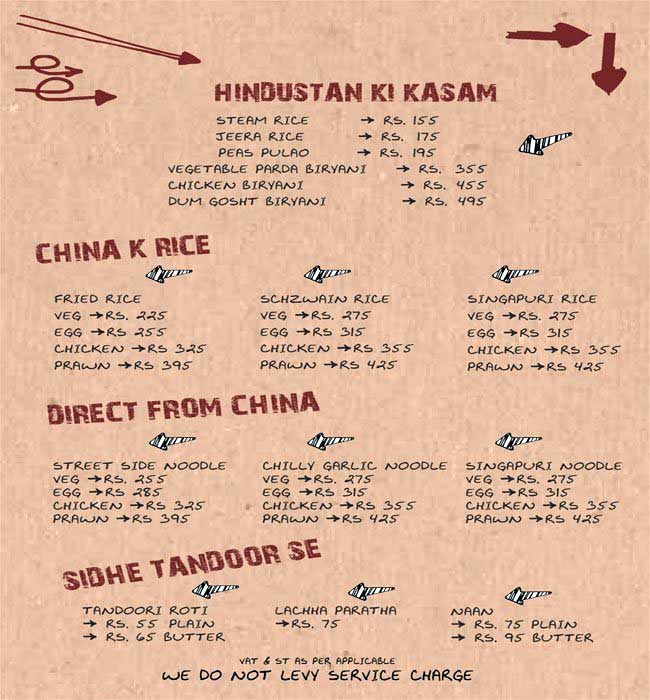 HINDUSTAN KI KASAM
STEAM RICE → RS. 155
JEERA RICE → RS. 175
PEAS PULAO → RS. 195
VEGETABLE PARDA BIRYANI → RS. 355
CHICKEN BIRYANI → RS. 455
DUM GOSHT BIRYANI → RS. 495
CHINA K RICE
FRIED RICE
VEG → RS. 225
EGG → RS 255
CHICKEN → RS 325
PRAWN → RS 395
SCHZWAIN RICE
VEG → RS. 275
EGG → RS 315
CHICKEN → RS 355
PRAWN → RS 425
SINGAPURI RICE
VEG → RS. 275
EGG → RS 315
CHICKEN → RS 355
PRAWN → RS 425
DIRECT FROM CHINA
STREET SIDE NOODLE
VEG → RS. 255
EGG → RS 285
CHICKEN → RS 325
PRAWN → RS 395
CHILLY GARLIC NOODLE
VEG → RS. 275
EGG → RS 315
CHICKEN → RS 355
PRAWN → RS 425
SINGAPURI NOODLE
VEG → RS. 275
EGG → RS 315
CHICKEN → RS 355
PRAWN → RS 425
SIDHE TANDOOR SE
TANDOORI ROTI
→ RS. 55 PLAIN
→ RS. 65 BUTTER
LACHHA PARATHA
→ RS. 75
NAAN
→ RS. 75 PLAIN
→ RS. 95 BUTTER
VAT & ST AS PER APPLICABLE
WE DO NOT LEVY SERVICE CHARGE